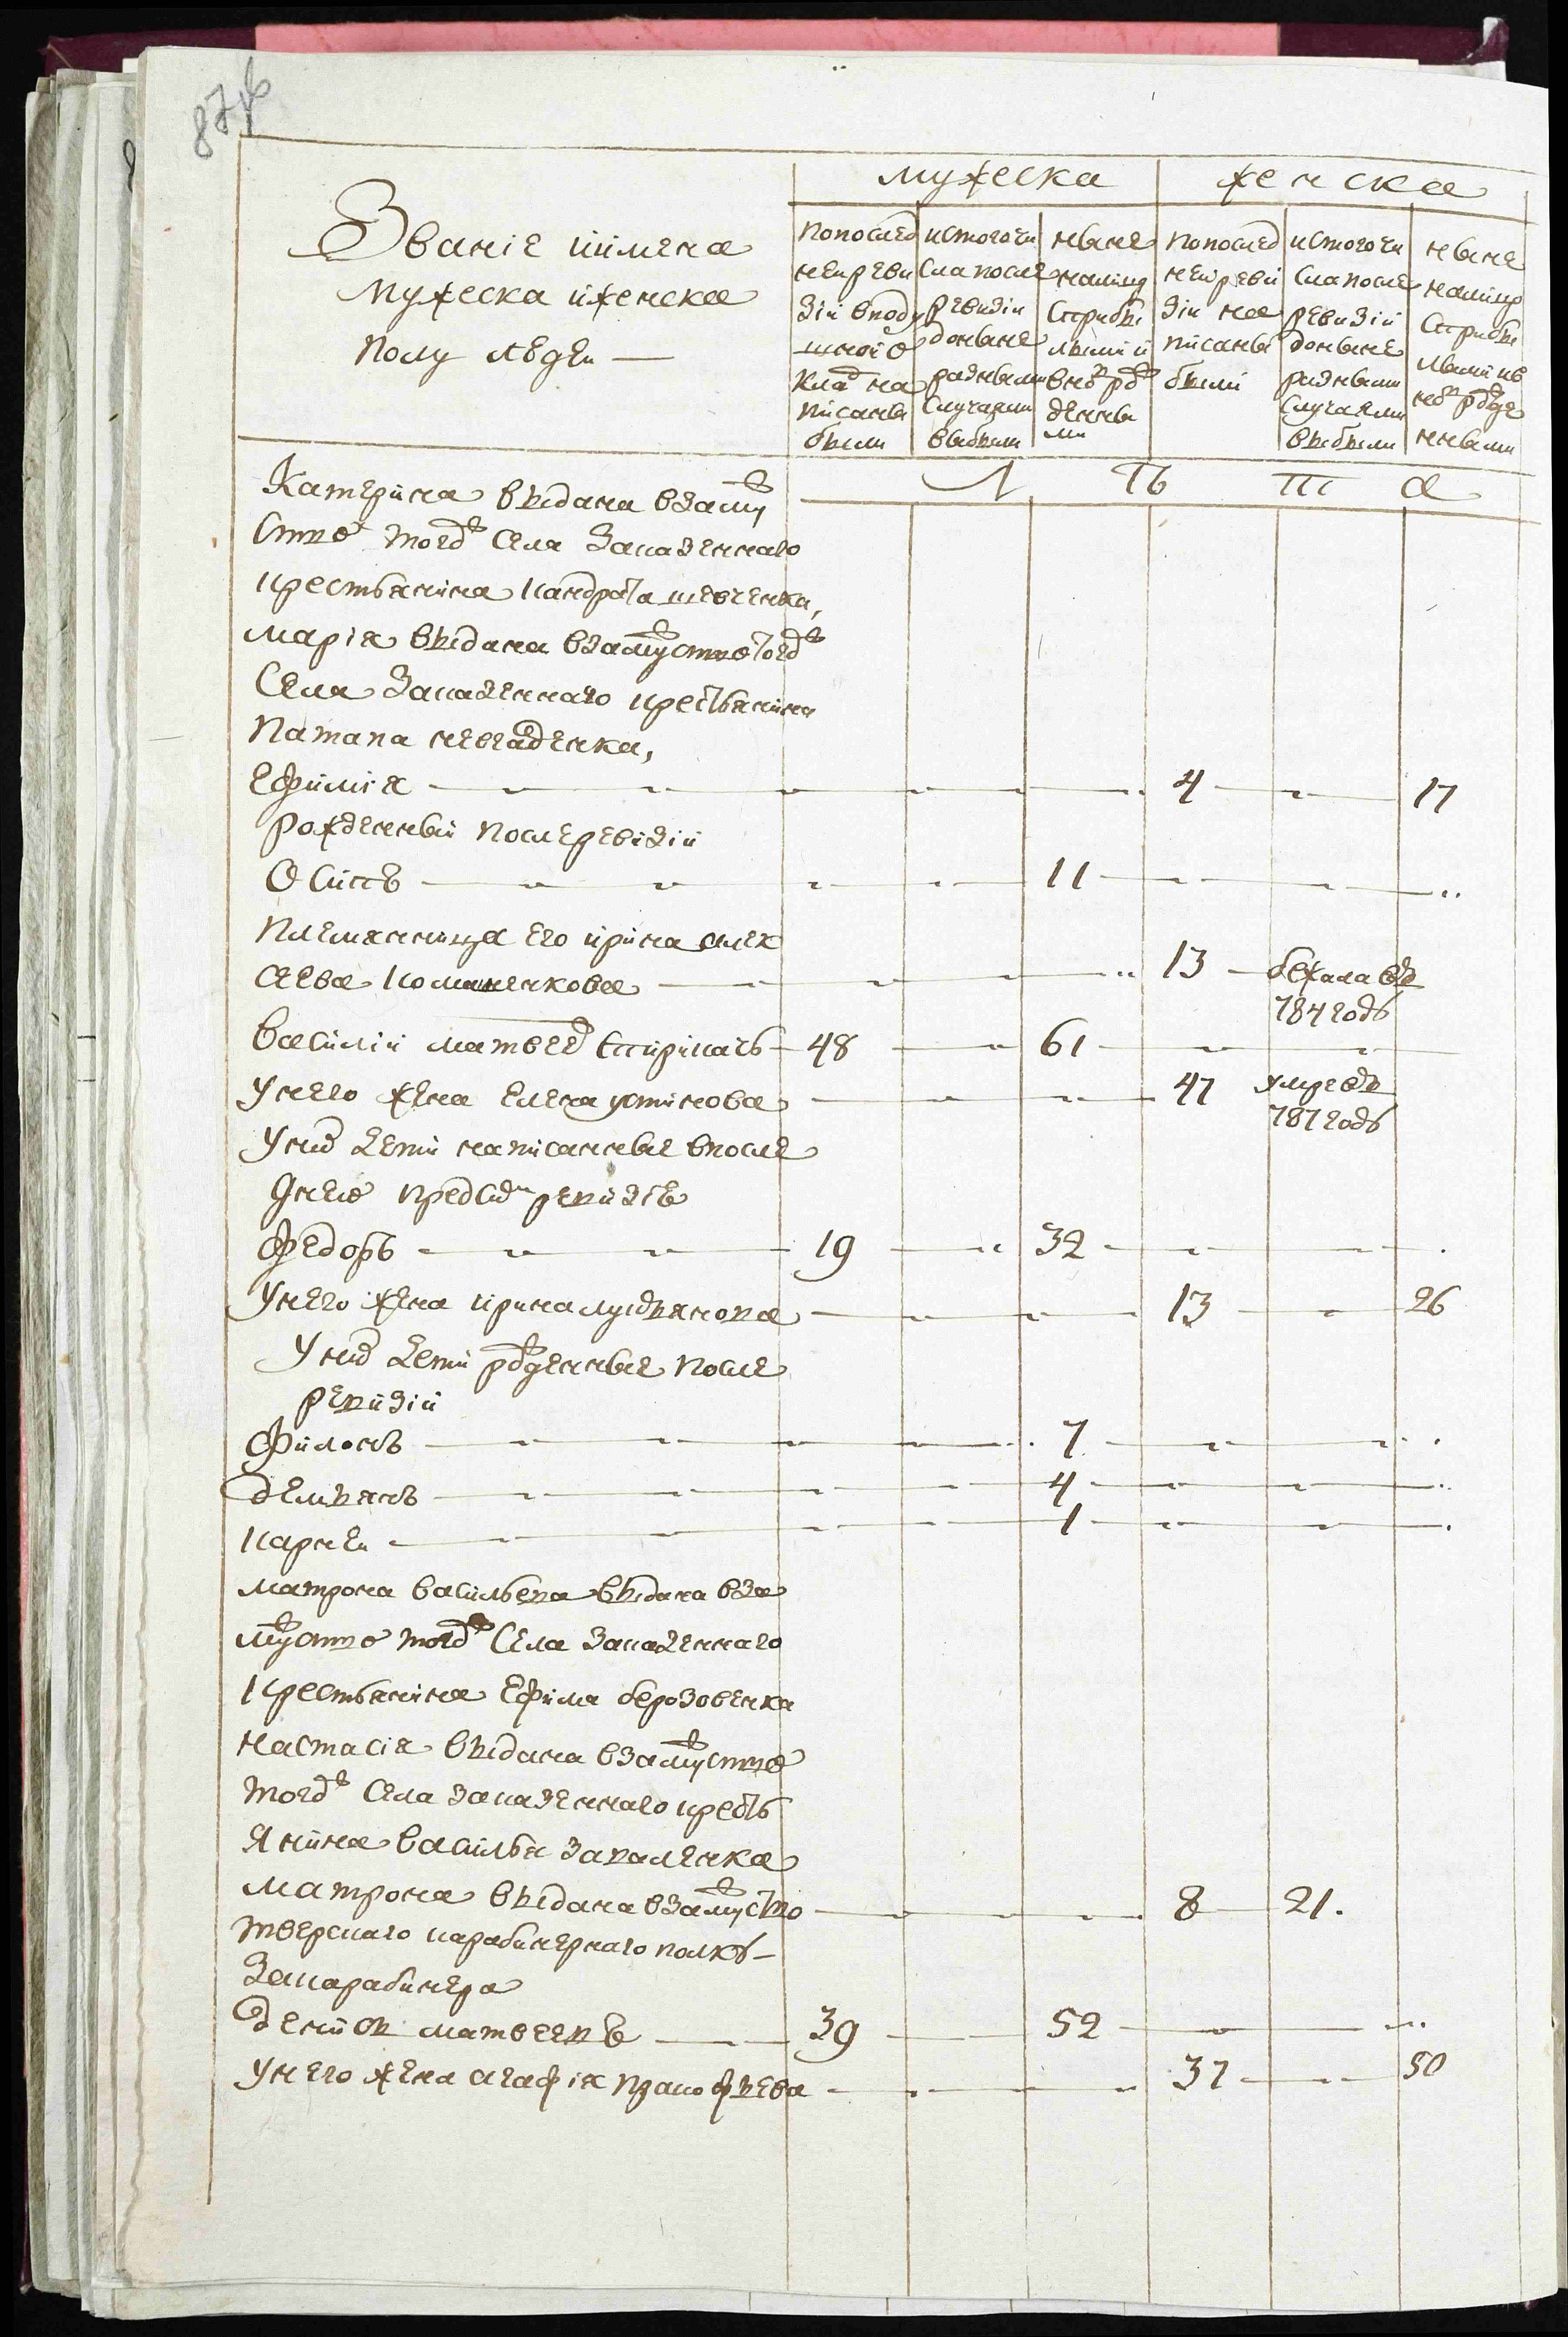 87об
мужеска женска
Званіе иимяна
Мужеска иженска
полу людеи —
попослед
неиреви
зіи вподу
шнои о
клад на
писаны
были
истогочи
сла после
ревизіи
доныне
разными
случаями
выбыли
ныне
налицо
сприбы
лыми и
вновь рож
денны
ми
попослед
неиреви
зіи на
писаны
были
истогочи
сла после
ревизіи
доныне
разными
случаями
выбыли
ныне
налицо
сприбы
лыми ив
новь рожде
нными
Л Ѣ Т А
Катерина выдана взаму
ство тогож села Закаженнаго
крестьянина Кандрата шевченка,
Марія выдана взамуство тогож
села Закаженнаго крестьянина
Патапа
Ефимія 4 17
рожденныи послеревизіи
Осипъ 11
Племянница его ирина алек
сеева 13 бежала въ
784 годѣ
Василіи матвеев 48 61
Унего жена Елена устинова 47 умре въ
787 годѣ
Уних дети написанные впосле
днею пред сим ревизіе
Федоръ 19 32
Унего жена ирина лукьянова 13 26
Уних дети рожденные после
ревизіи
Филонъ 7
демьянъ 4
Карнеи 1
матрона васильева выдана вза
муство тогож села закаженнаго
Крестьянина Ефима берозовенка
настасія выдана взамуство
тогож села закаженнаго кресть
янина василья
матрона выдана взамуство 8 21.
тверскаго карабинернаго полкѣ
Закарабинера
денис матвеевъ 39 52
Унего жена агафія 37 50